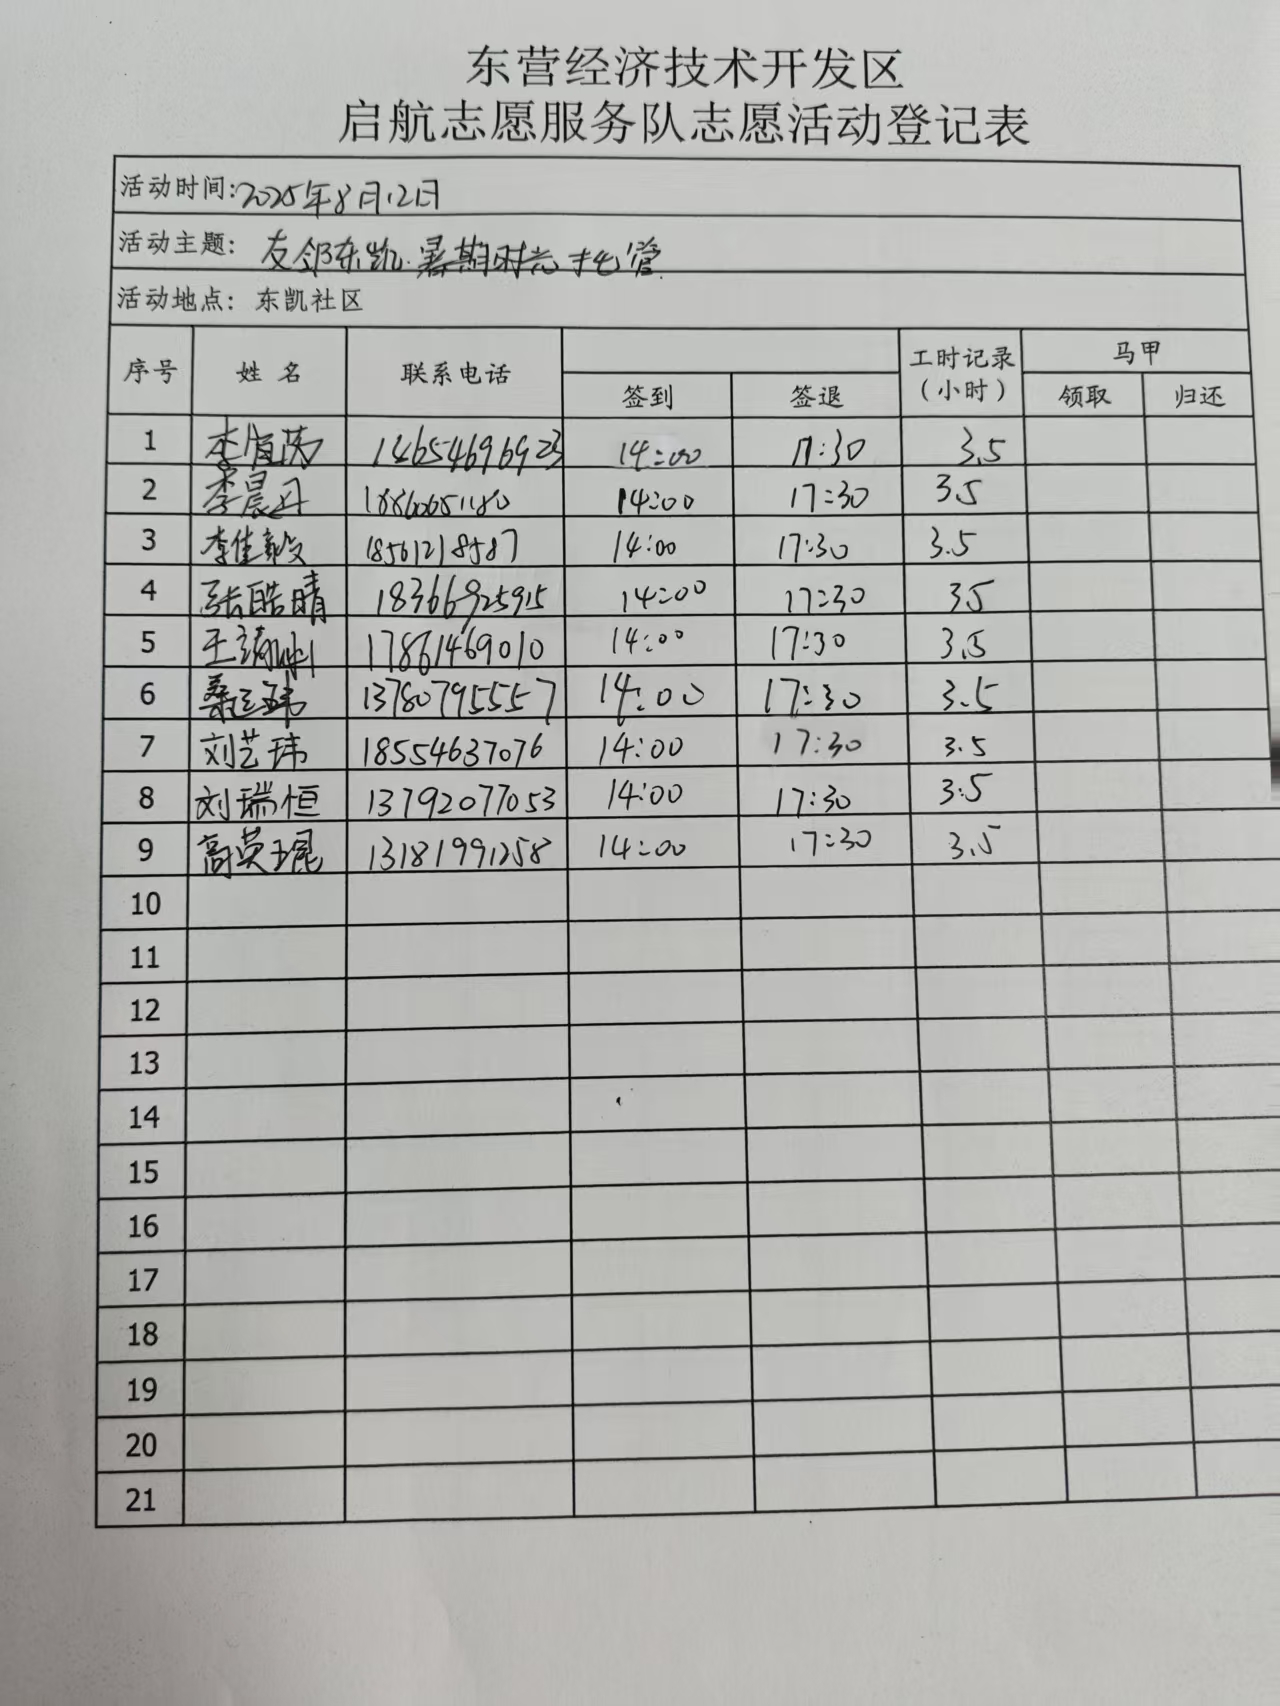 东营经济技术开发区
启航志愿服务队志愿活动登记表
活动时间:2025年8月12日
活动主题: 友邻东凯.暑期时光托管
活动地点: 东凯社区
序号 姓名 联系电话 签到 签退 工时记录(小时) 马甲 领取 归还
1 李 14654696923 14:00 17:30 3.5
2 李晨丹 18860651180 14:00 17:30 3.5
3 李佳毅 18561218587 14:00 17:30 3.5
4 张皓晴 18366925915 14:00 17:30 3.5
5 王 17861469010 14:00 17:30 3.5
6 桑 玮 13780795557 14:00 17:30 3.5
7 刘艺玮 18554637076 14:00 17:30 3.5
8 刘瑞恒 13792077053 14:00 17:30 3.5
9 高英琨 13181991258 14:00 17:30 3.5
10
11
12
13
14
15
16
17
18
19
20
21